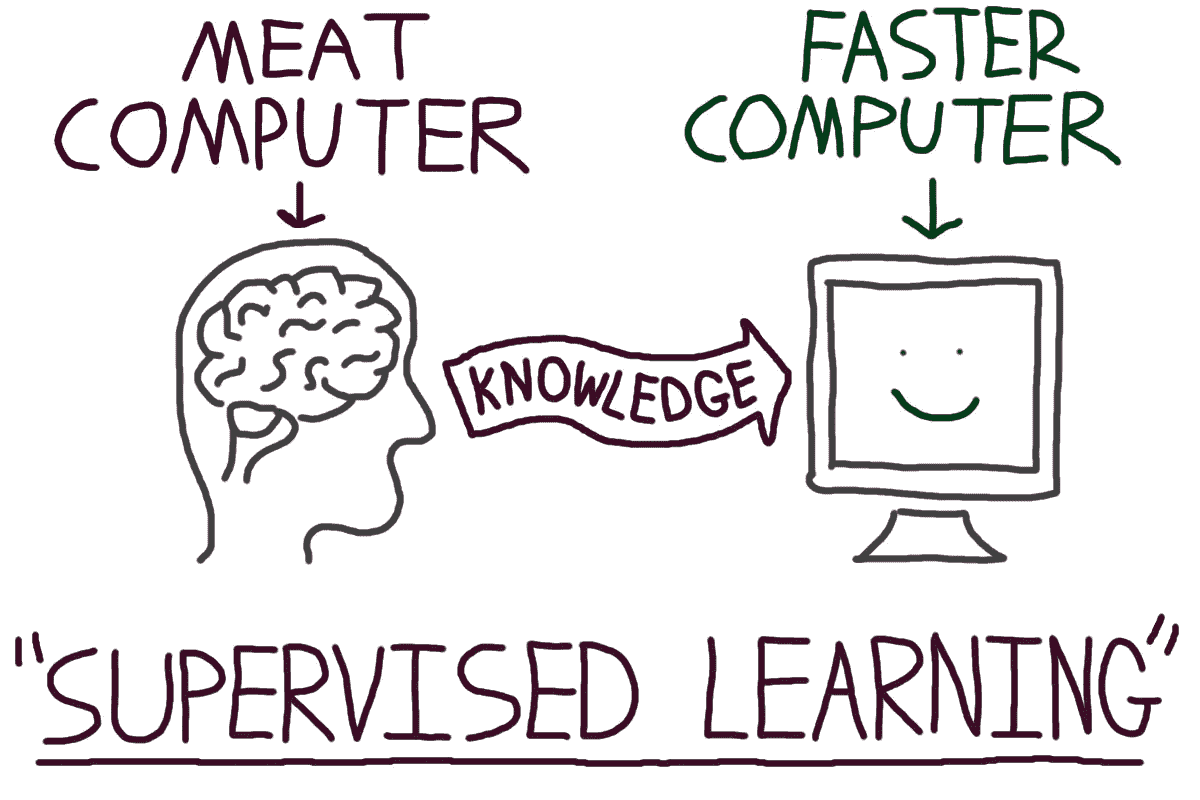 MEAT
COMPUTER
FASTER
COMPUTER
KNOWLEDGE
"SUPERVISED LEARNING"